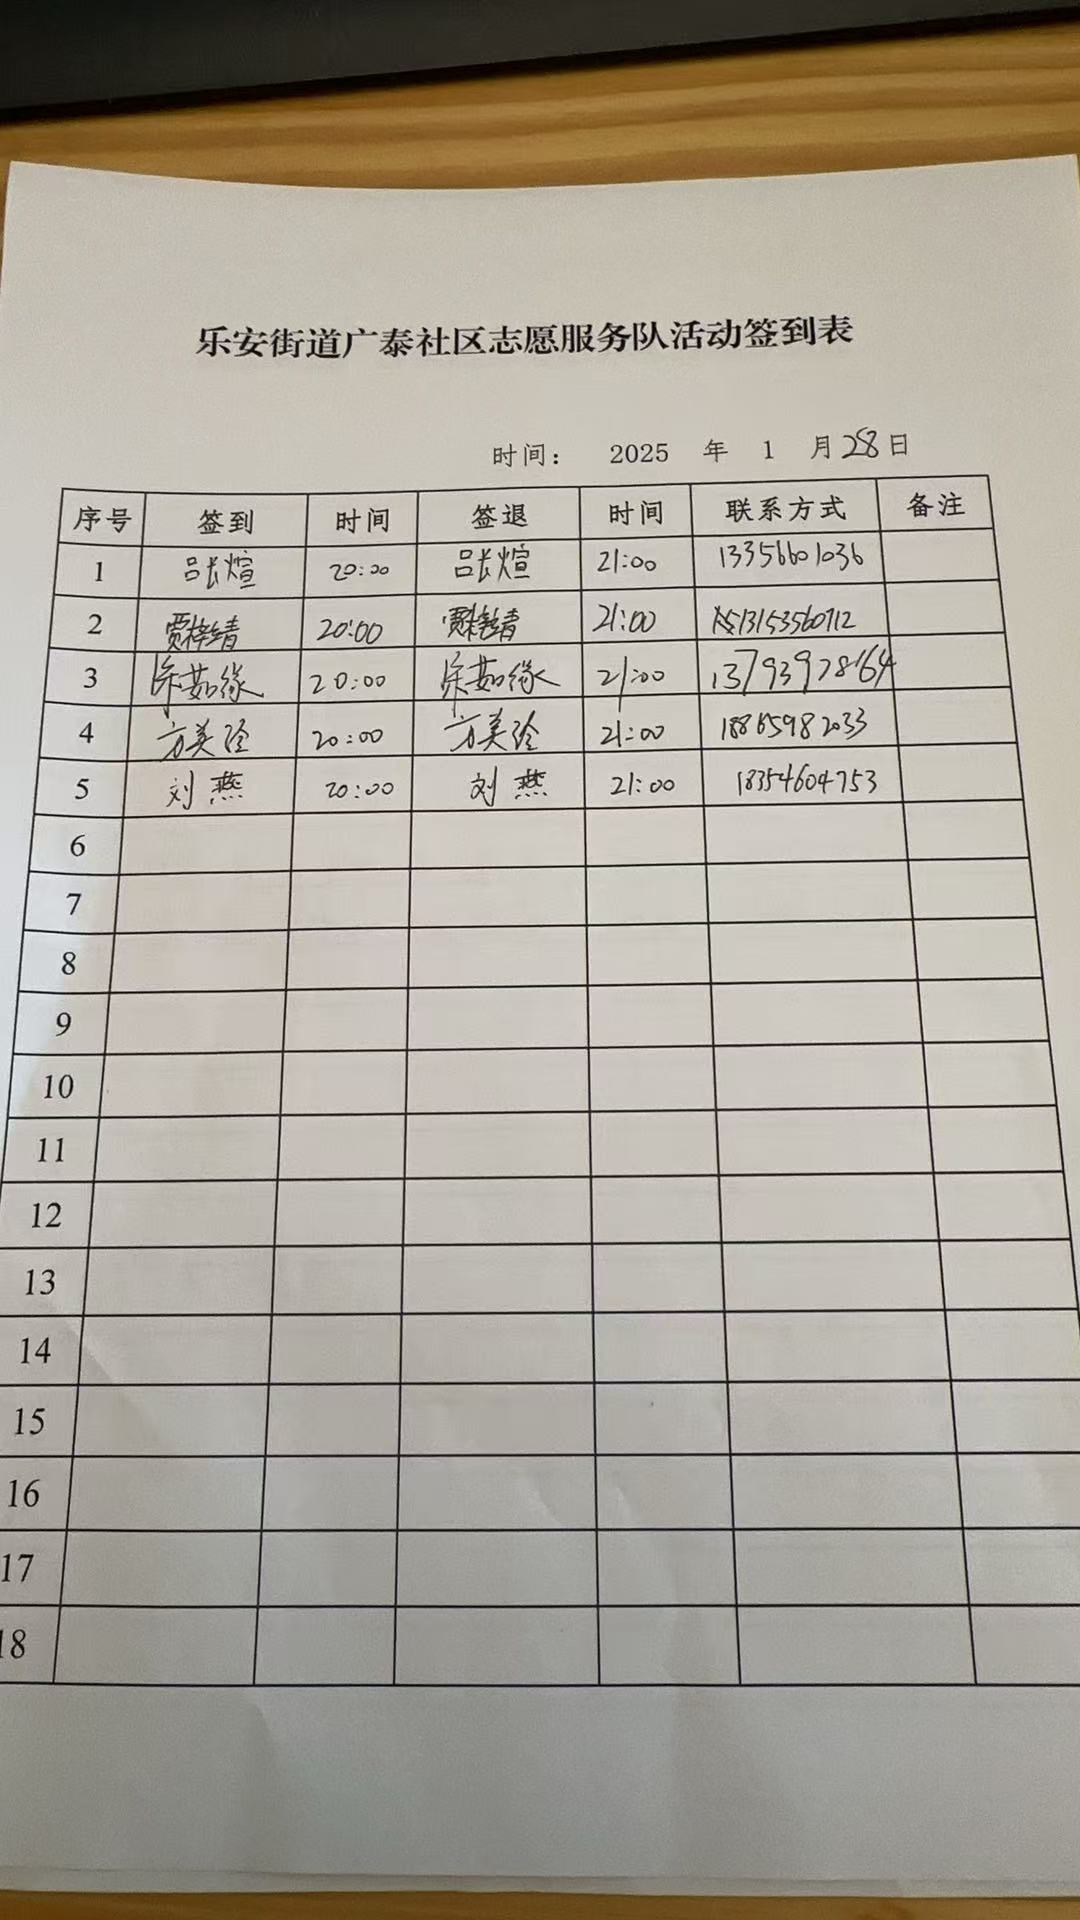 乐安街道广泰社区志愿服务队活动签到表
时间： 2025 年 1 月 28 日
序号 签到 时间 签退 时间 联系方式 备注
1 吕长煊 20:00 吕长煊 21:00 13356601036
2 贾梓靖 20:00 贾梓靖 21:00 13153560712
3 茹缘 20:00 茹缘 21:00 13793978164
4 方美 20:00 方美 21:00 18865982033
5 刘燕 20:00 刘燕 21:00 18354604753
6
7
8
9
10
11
12
13
14
15
16
17
18